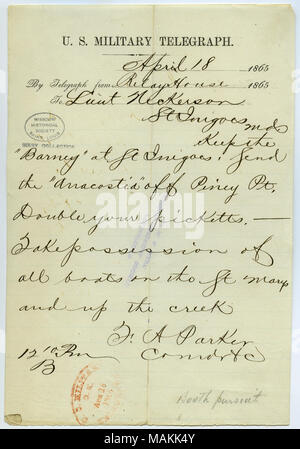 U. S. MILITARY TELEGRAPH.
April 18 1865
By Telegraph from Relay House 1865
To Lieut Nickerson
St Inigoes Mds
Keep the
"Barney" at St Inigoes. Send
the "Anacostia" off Piney Pt.
Double your picketts. —
Take possession of
all boats on the St Marys
and up the creek
F. A Parker
Comdr &c
B
MISSOURI
HISTORICAL
SOCIETY
Booth pursuit
alamy
Image ID: MAKK4Y
www.alamy.com